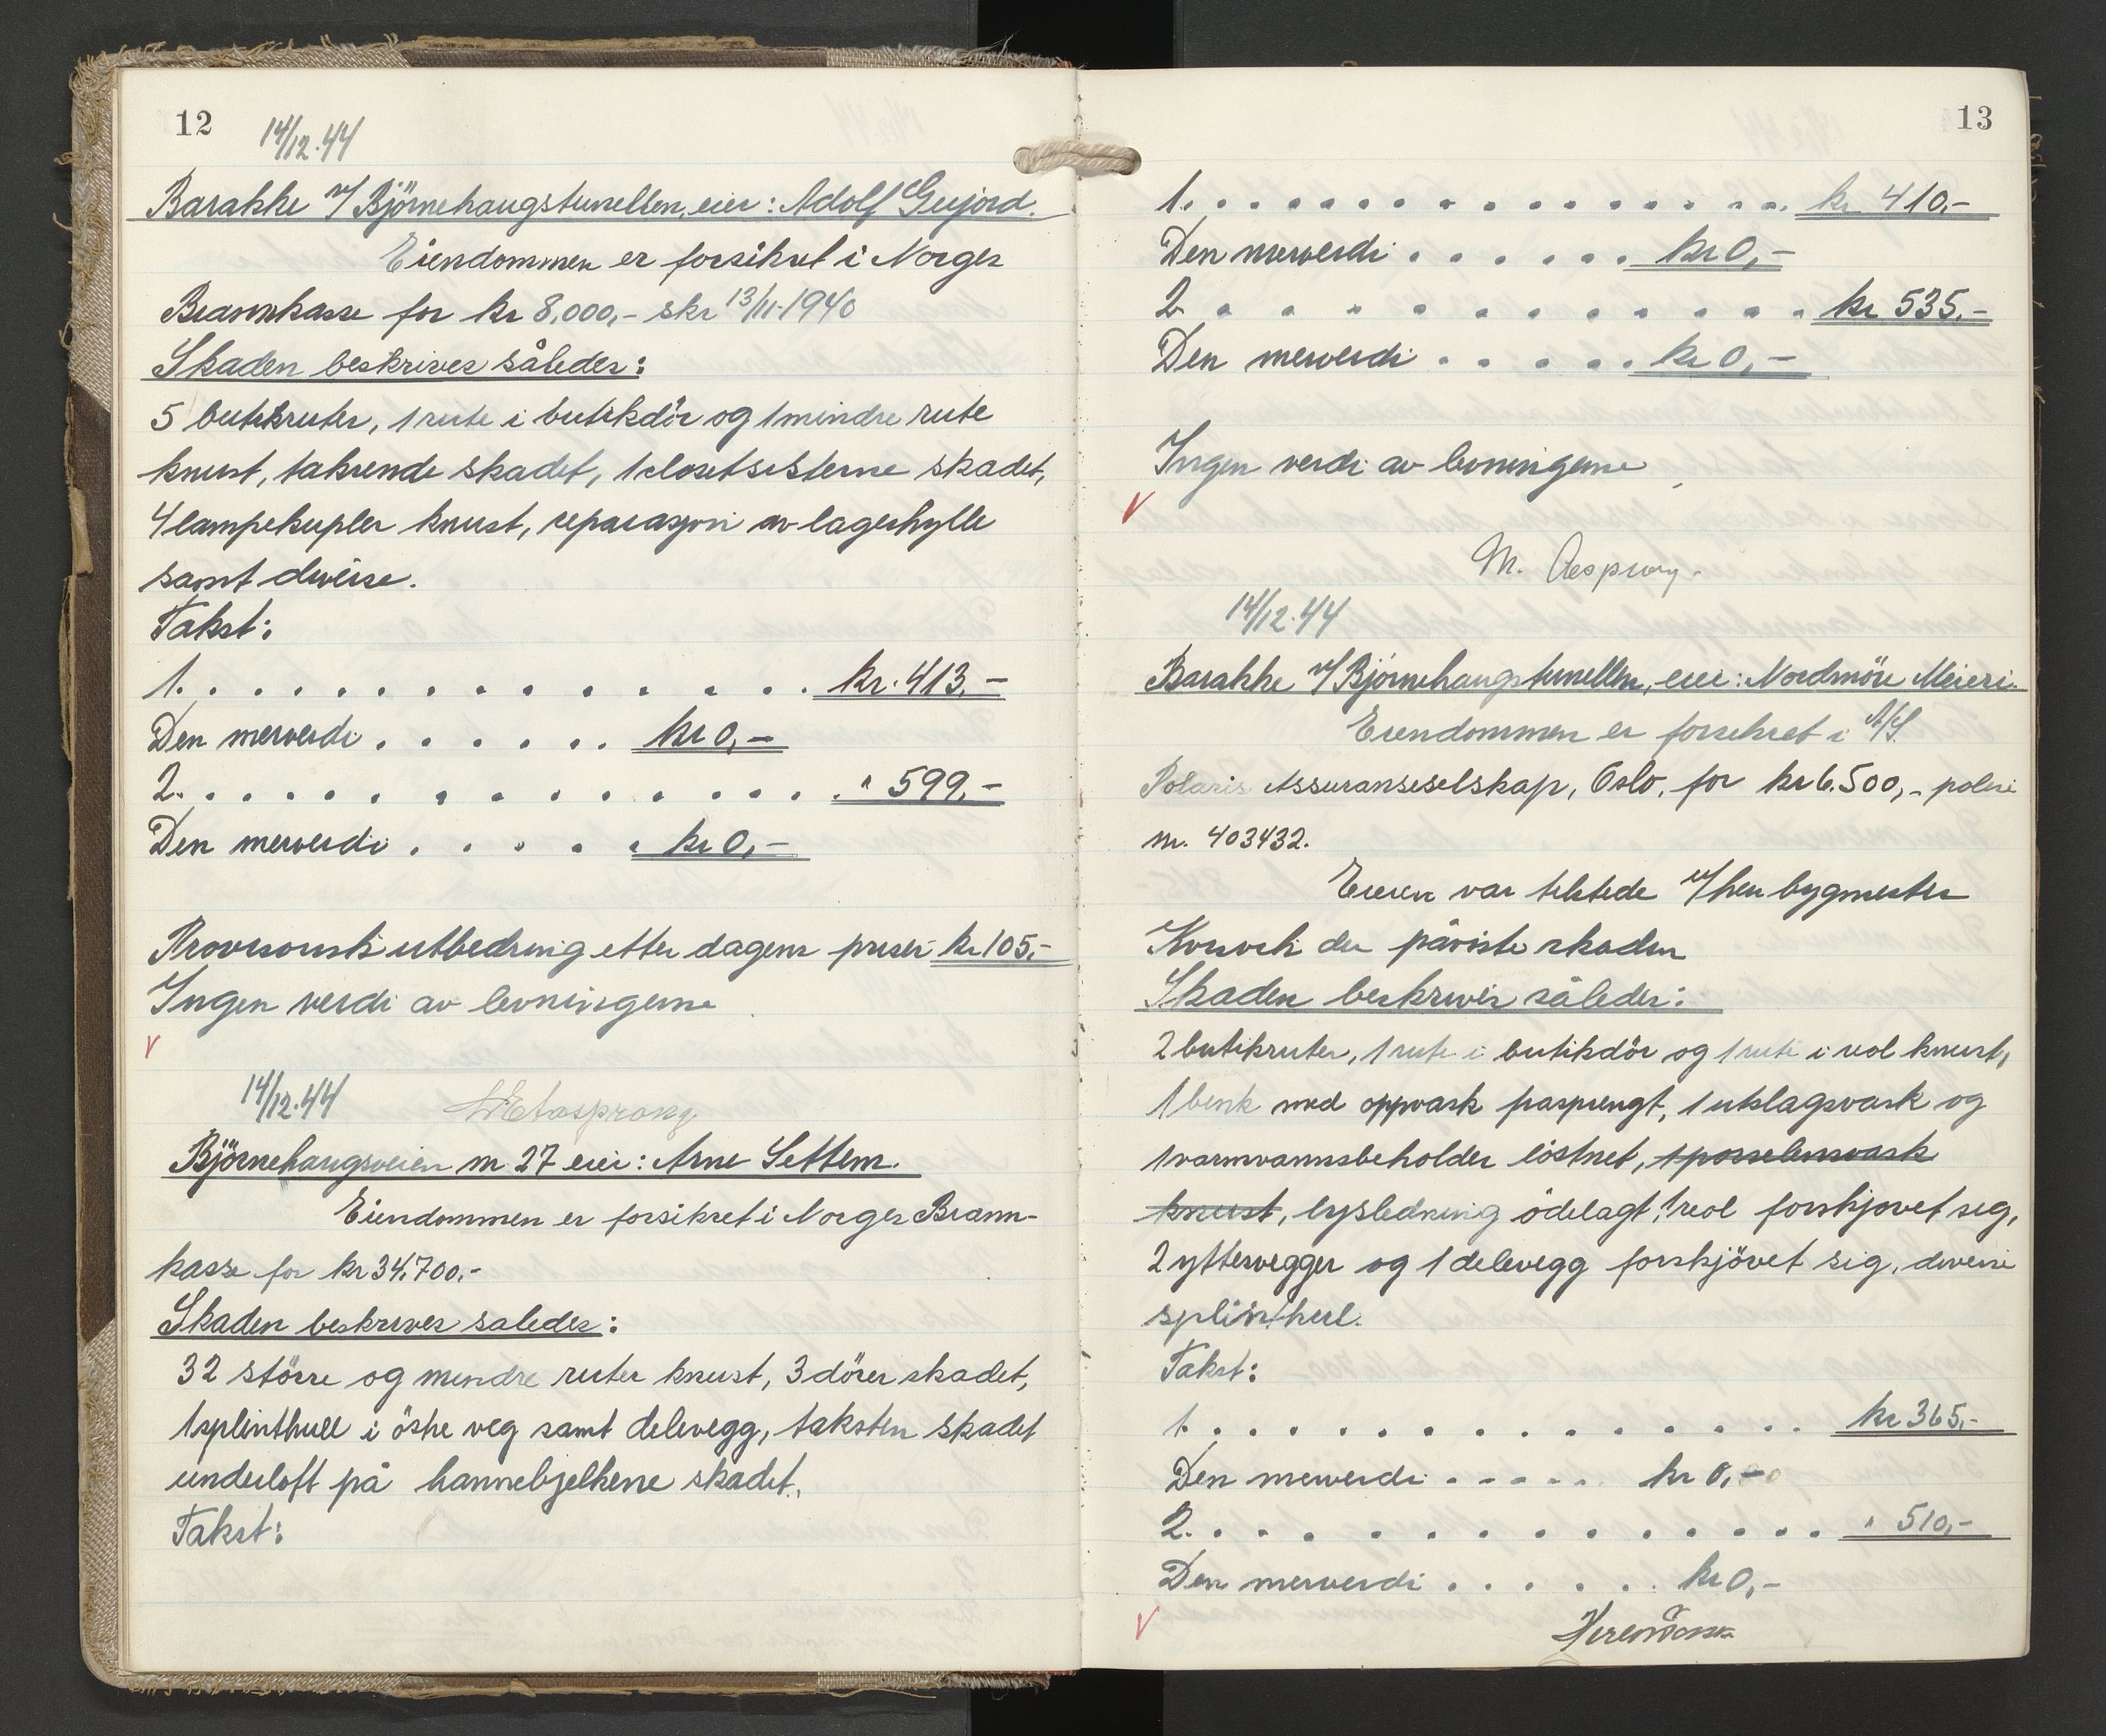 12
14/12.44
Barakke v/Björnehaugstunellen, eier: Adolf Gujord.
Eiendommen er forsikret i Norges
Brannkasse for kr 8,000,- skr 13/11-1940
Skaden beskrives således:
5 butikkruter, 1 rute i butikdör og 1 mindre rute
knust, takrende skadet, 1 closetsisterne skadet,
4 lampekupler knust, reparasjon av lagerhylle
samt diverse.
Takst:
1. . . . . . . . . . . . . . kr. 413.-
Den merverdi . . . . . . kr 0,-
2. . . . . . . . . . . . . . " 599.-
Den merverdi . . . . . kr 0,-
Provisorisk utbedring etter dagens priser kr 105,-
Ingen verdi av levningerne
V
14/12.44
Björnehaugsveien nr 27 eier: Arne Settem.
Eiendommen er forsikret i Norges Brann-
kasse for kr 34.700.-
Skaden beskrives saledes:
32 större og mindre ruter knust, 3 dörer skadet,
1 splinthull i östre veg samt delevegg, taksten skadet
underloft på hannebjelkene skadet.
Takst:
13
1. . . . . . . . . . . . . . kr 410,-
Den merverdi . . . . . . kr 0,-
2 . . . . . . . . . . . . kr 535.-
Den merverdi . . . . . kr 0,-
Ingen verdi av levningerne
V
M.
14/12.44
Barakke v/Björnehaugstunellen, eier: Nordmöre Meieri.
Eiendommen er forsikret i A/S.
Polaris Assuranseselskap, Oslo, for kr 6.500,- polise
nr. 403432.
Eieren var tilstede v/herr bygmester
der påviste skaden
Skaden beskrives således:
2 butikruter, 1 rute i butikdör og 1 rute i reol knust,
1 benk med oppvask frasprengt, 1 utslagsvask og
1 varmvannsbeholder löstnet, 1 porselensvask
knust, lysledning ödelagt, 1 reol forskjövet seg,
2 yttervegger og 1 delevegg forskjövet sig, diverse
splinthul.
Takst:
1. . . . . . . . . . . . . . kr 365,-
Den merverdi - - - - - kr 0,-
2. . . . . . . . . . . . . . " 510,-
Den merverdi . . . . . . kr 0,-
V